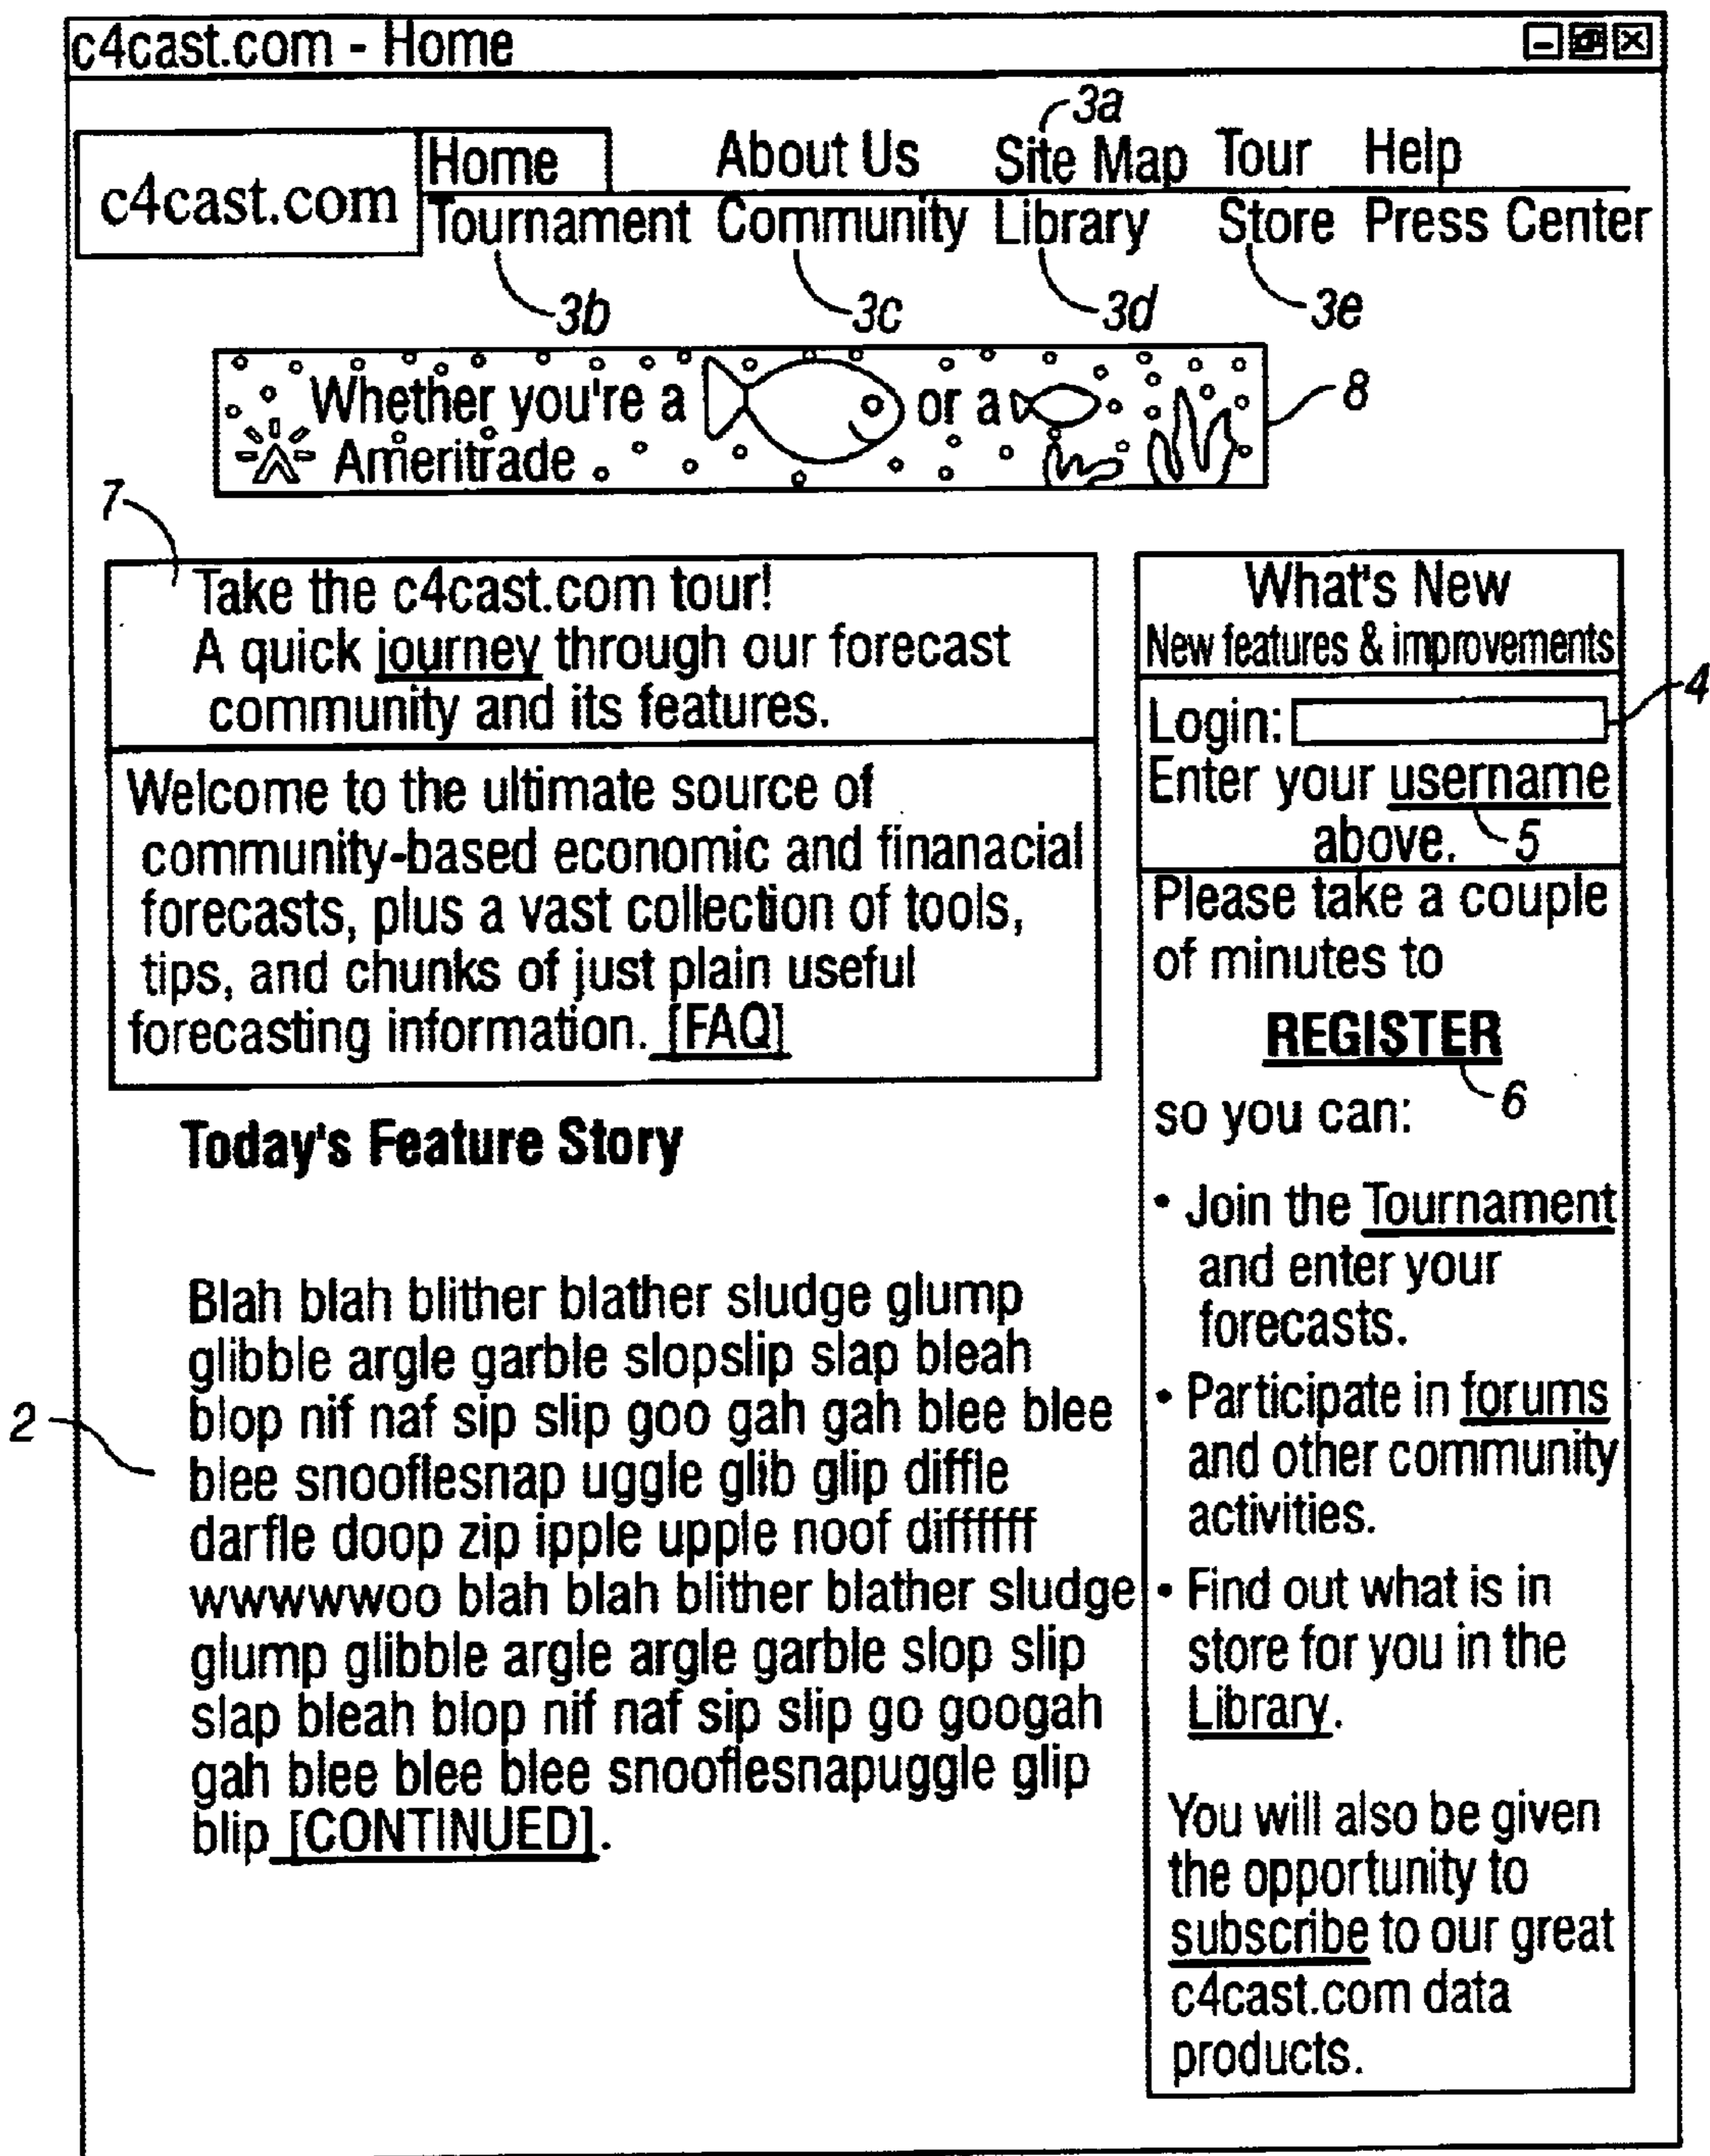 c4cast.com - Home
3a
c4cast.com
Home About Us Site Map Tour Help
Tournament Community Library Store Press Center
3b 3c 3d 3e
Whether you're a or a
Ameritrade
8
7
Take the c4cast.com tour!
A quick journey through our forecast
community and its features.
Welcome to the ultimate source of
community-based economic and finanacial
forecasts, plus a vast collection of tools,
tips, and chunks of just plain useful
forecasting information. [FAQ]
Today's Feature Story
2
Blah blah blither blather sludge glump
glibble argle garble slopslip slap bleah
blop nif naf sip slip goo gah gah blee blee
blee snooflesnap uggle glib glip diffle
darfle doop zip ipple upple noof diffffff
wwwwwoo blah blah blither blather sludge
glump glibble argle argle garble slop slip
slap bleah blop nif naf sip slip go googah
gah blee blee blee snooflesnapuggle glip
blip [CONTINUED].
What's New
New features & improvements
4
Login:
Enter your username
above. 5
Please take a couple
of minutes to
REGISTER
6
so you can:
• Join the Tournament
and enter your
forecasts.
• Participate in forums
and other community
activities.
• Find out what is in
store for you in the
Library.
You will also be given
the opportunity to
subscribe to our great
c4cast.com data
products.